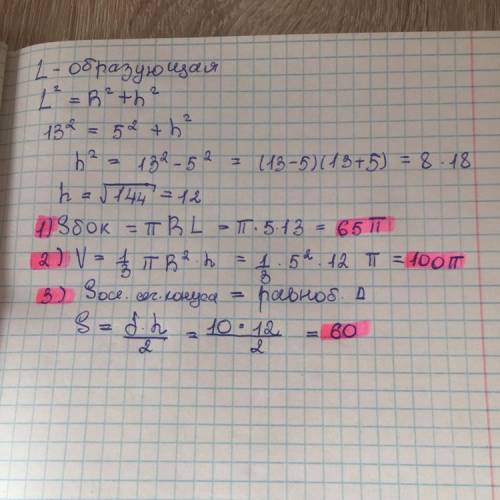 L - образующая
L² = R² + h²
13² = 5² + h²
h² = 13² - 5² = (13-5)(13+5) = 8 · 18
h = √144 = 12
1) Sбок = π R L = π · 5 · 13 = 65π
2) V = 1/3 π R² · h = 1/3 · 5² · 12 π = 100π
3) Sосе. сеч. конуса = равноб. Δ
S = δ · h / 2 = 10 · 12 / 2 = 60